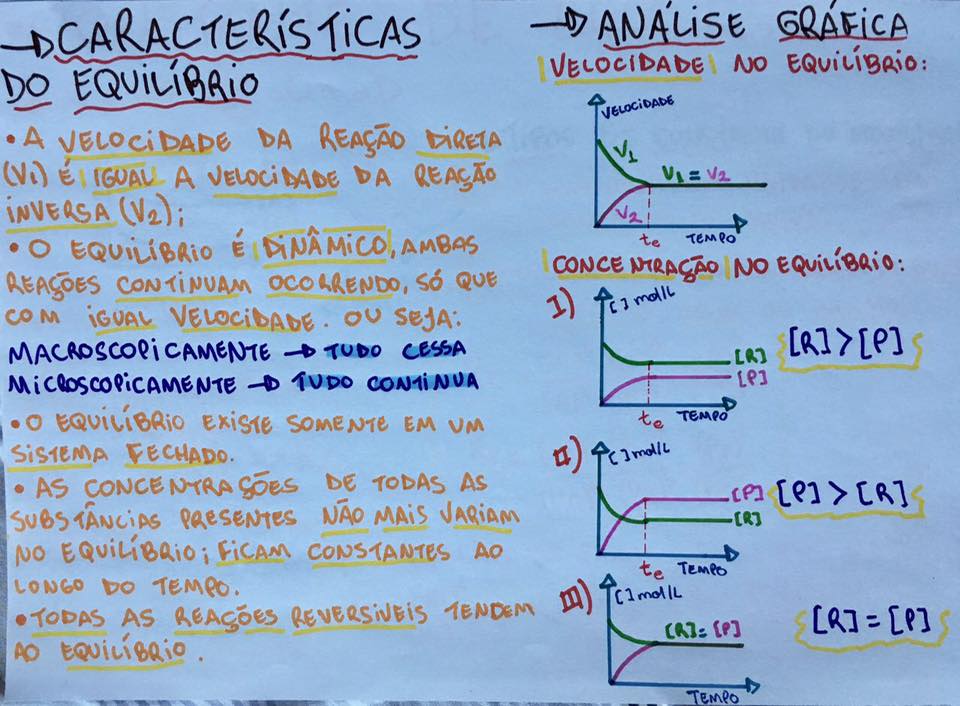 → CARACTERÍSTICAS
DO EQUILÍBRIO
• A VELOCIDADE DA REAÇÃO DIRETA
(V1) É IGUAL A VELOCIDADE DA REAÇÃO
INVERSA (V2);
• O EQUILÍBRIO É DINÂMICO, AMBAS
REAÇÕES CONTINUAM OCORRENDO, SÓ QUE
COM IGUAL VELOCIDADE. OU SEJA:
MACROSCOPICAMENTE → TUDO CESSA
MICROSCOPICAMENTE → TUDO CONTINUA
• O EQUILÍBRIO EXISTE SOMENTE EM UM
SISTEMA FECHADO.
• AS CONCENTRAÇÕES DE TODAS AS
SUBSTÂNCIAS PRESENTES NÃO MAIS VARIAM
NO EQUILÍBRIO; FICAM CONSTANTES AO
LONGO DO TEMPO.
• TODAS AS REAÇÕES REVERSIVEIS TENDEM
AO EQUILÍBRIO.
→ ANÁLISE GRÁFICA
VELOCIDADE NO EQUILÍBRIO:
VELOCIDADE
V1
V1 = V2
V2
te TEMPO
CONCENTRAÇÃO NO EQUILÍBRIO:
I) [ ] mol/L
[R]
[P]
[R] > [P]
te TEMPO
II) [ ] mol/L
[P]
[R]
[P] > [R]
te TEMPO
III) [ ] mol/L
[R] = [P]
[R] = [P]
TEMPO